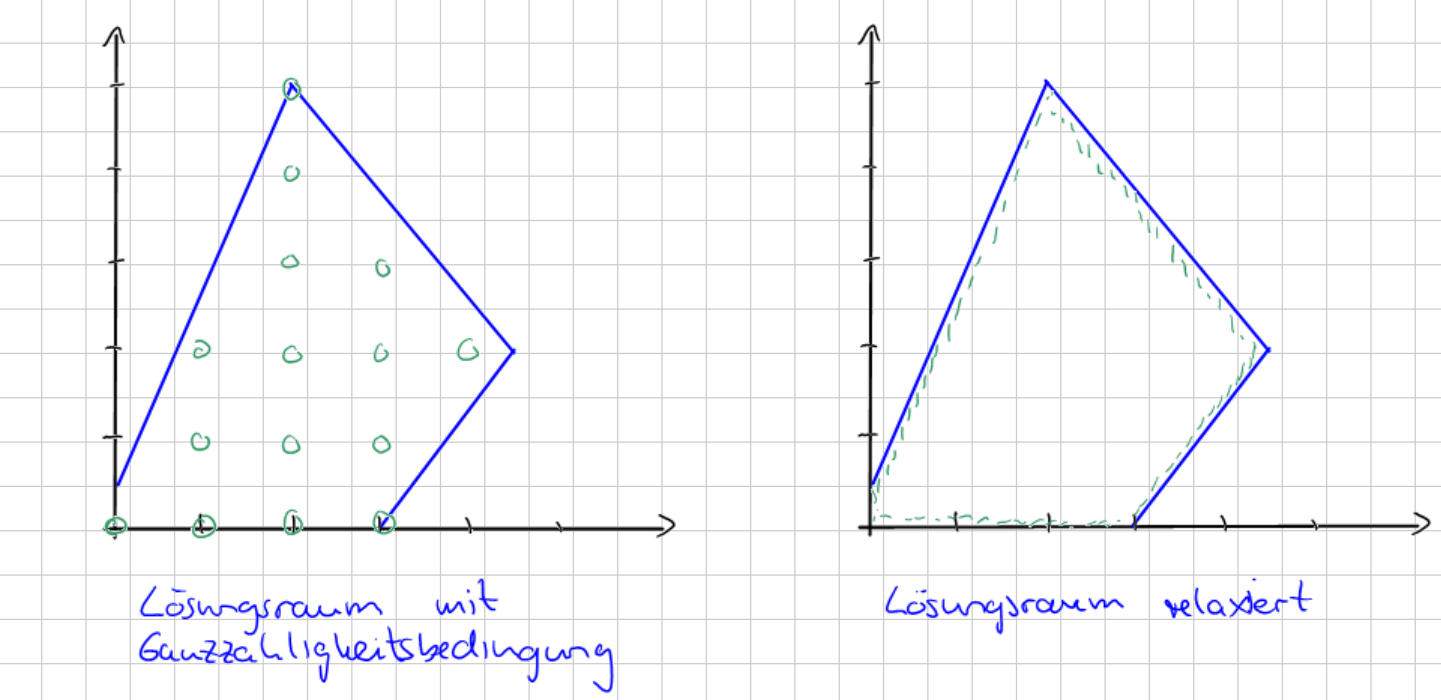 Lösungsraum mit
Ganzzahligkeitsbedingung
Lösungsraum relaxiert